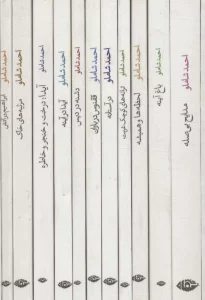 احمد شاملو
مدایح بی‌صله
احمد شاملو
باغ آینه
احمد شاملو
لحظه‌ها و همیشه
احمد شاملو
ترانه‌های کوچک غربت
احمد شاملو
در آستانه
احمد شاملو
ققنوس در باران
احمد شاملو
دشنه در دیس
احمد شاملو
آیدا در آینه
احمد شاملو
آیدا: درخت و خنجر و خاطره
احمد شاملو
مرثیه‌های خاک
احمد شاملو
ابراهیم در آتش